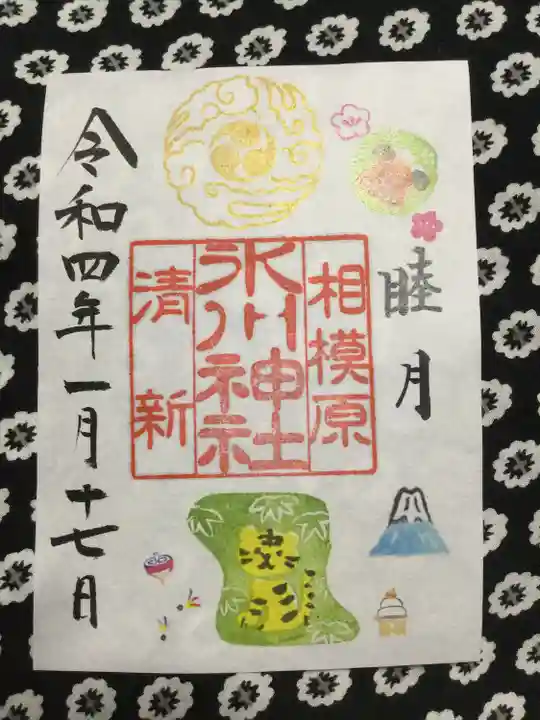 睦月
相模原
氷川神社
清新
令和四年一月十七日